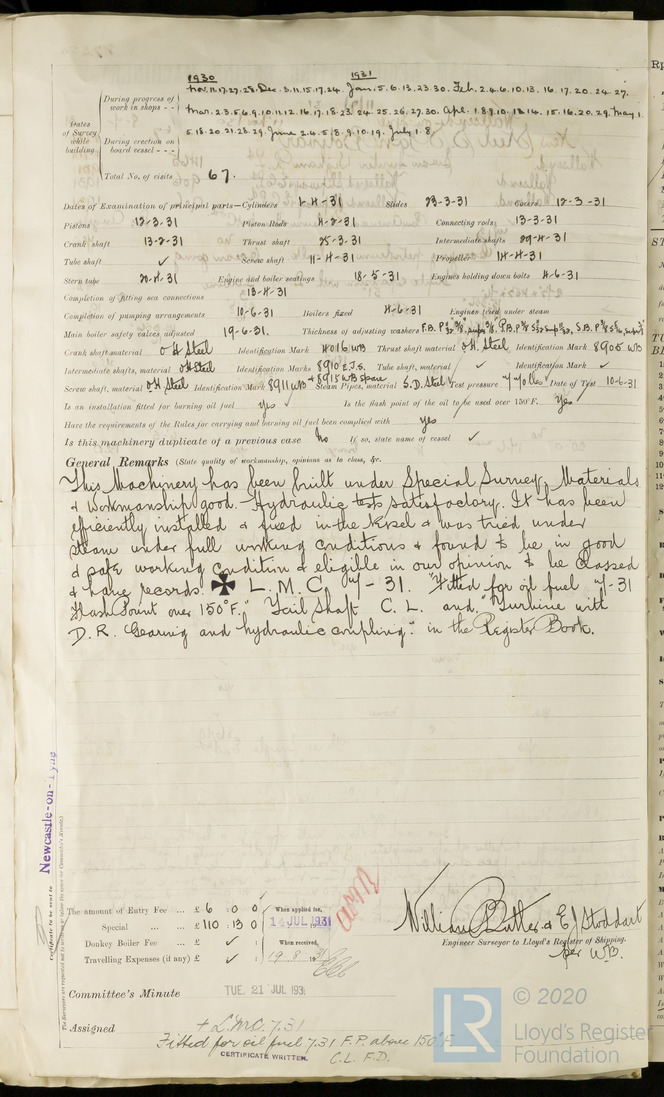 1930 1931
Dates of Survey while building
During progress of work in shops - -
Nov. 11. 17. 27. 28. Dec. 3. 11. 15. 17. 24. Jan. 5. 6. 13. 23. 30. Feb. 2. 4. 6. 10. 13. 16. 17. 20. 24. 27.
Mar. 2. 3. 5. 6. 9. 10. 11. 12. 16. 17. 18. 23. 24. 25. 26. 27. 30. Apl. 1. 8. 9. 10. 13. 14. 15. 16. 20. 29. May 1.
During erection on board vessel - - -
5. 18. 20. 21. 28. 29. June 2. 4. 5. 8. 9. 10. 19. July 1. 8.
Total No. of visits 67.
Dates of Examination of principal parts—Cylinders 1-4-31 Slides 23-3-31 Covers 12-3-31
Pistons 12-3-31 Piston Rods 4-2-31 Connecting rods 13-3-31
Crank shaft 13-2-31 Thrust shaft 25-3-31 Intermediate shafts 29-4-31
Tube shaft ✓ Screw shaft 11-4-31 Propeller 14-4-31
Stern tube 20-4-31 Engine and boiler seatings 18-5-31 Engines holding down bolts 4-6-31
Completion of fitting sea connections 13-4-31
Completion of pumping arrangements 10-6-31 Boilers fixed 4-6-31 Engines tried under steam
Main boiler safety valves adjusted 19-6-31. Thickness of adjusting washers
Crank shaft material O H Steel Identification Mark 4016 WB Thrust shaft material O H. Steel Identification Mark 8905 WB
Intermediate shafts, material OH Steel Identification Marks 8910 E.J.S. Tube shaft, material ✓ Identification Mark ✓
+ 8915 WB spare
Screw shaft, material OH Steel Identification Mark 8911 WB Steam Pipes, material S.D. Steel Test pressure Date of Test 10-6-31
Is an installation fitted for burning oil fuel yes ✓ Is the flash point of the oil to be used over 150°F. Yes
Have the requirements of the Rules for carrying and burning oil fuel been complied with yes
Is this machinery duplicate of a previous case No If so, state name of vessel ✓
General Remarks (State quality of workmanship, opinions as to class, &c.
This Machinery has been built under Special Survey, Materials
& Workmanship good. Hydraulic tests satisfactory. It has been
efficiently installed & fixed in the Vessel & was tried under
steam under full working conditions & found to be in good
& safe working condition & eligible in our opinion to be classed
& have records ✠ L. M. C. 7-31. "Fitted for oil fuel 7-31
Flash Point over 150°F." Tail Shaft C. L. and "Turbine with
D. R. Gearing and hydraulic coupling." in the Register Book.
Newcastle-on-Tyne
Certificate to be sent to
The amount of Entry Fee ... £ 6 : 0 : 0
Special ... £ 110 : 13 : 0
Donkey Boiler Fee ... £ ✓
Travelling Expenses (if any) £ ✓
When applied for,
14 JUL 1931
When received,
19. 8. 31
William Butler & E J Stoddart
Engineer Surveyor to Lloyd's Register of Shipping.
per W.B.
Committee's Minute TUE. 21 JUL 1931
Assigned + L.M.C. 7.31
Fitted for oil fuel 7.31 F.P. above 150°F
CERTIFICATE WRITTEN. C.L. F.D.
LR © 2020
Lloyd's Register
Foundation